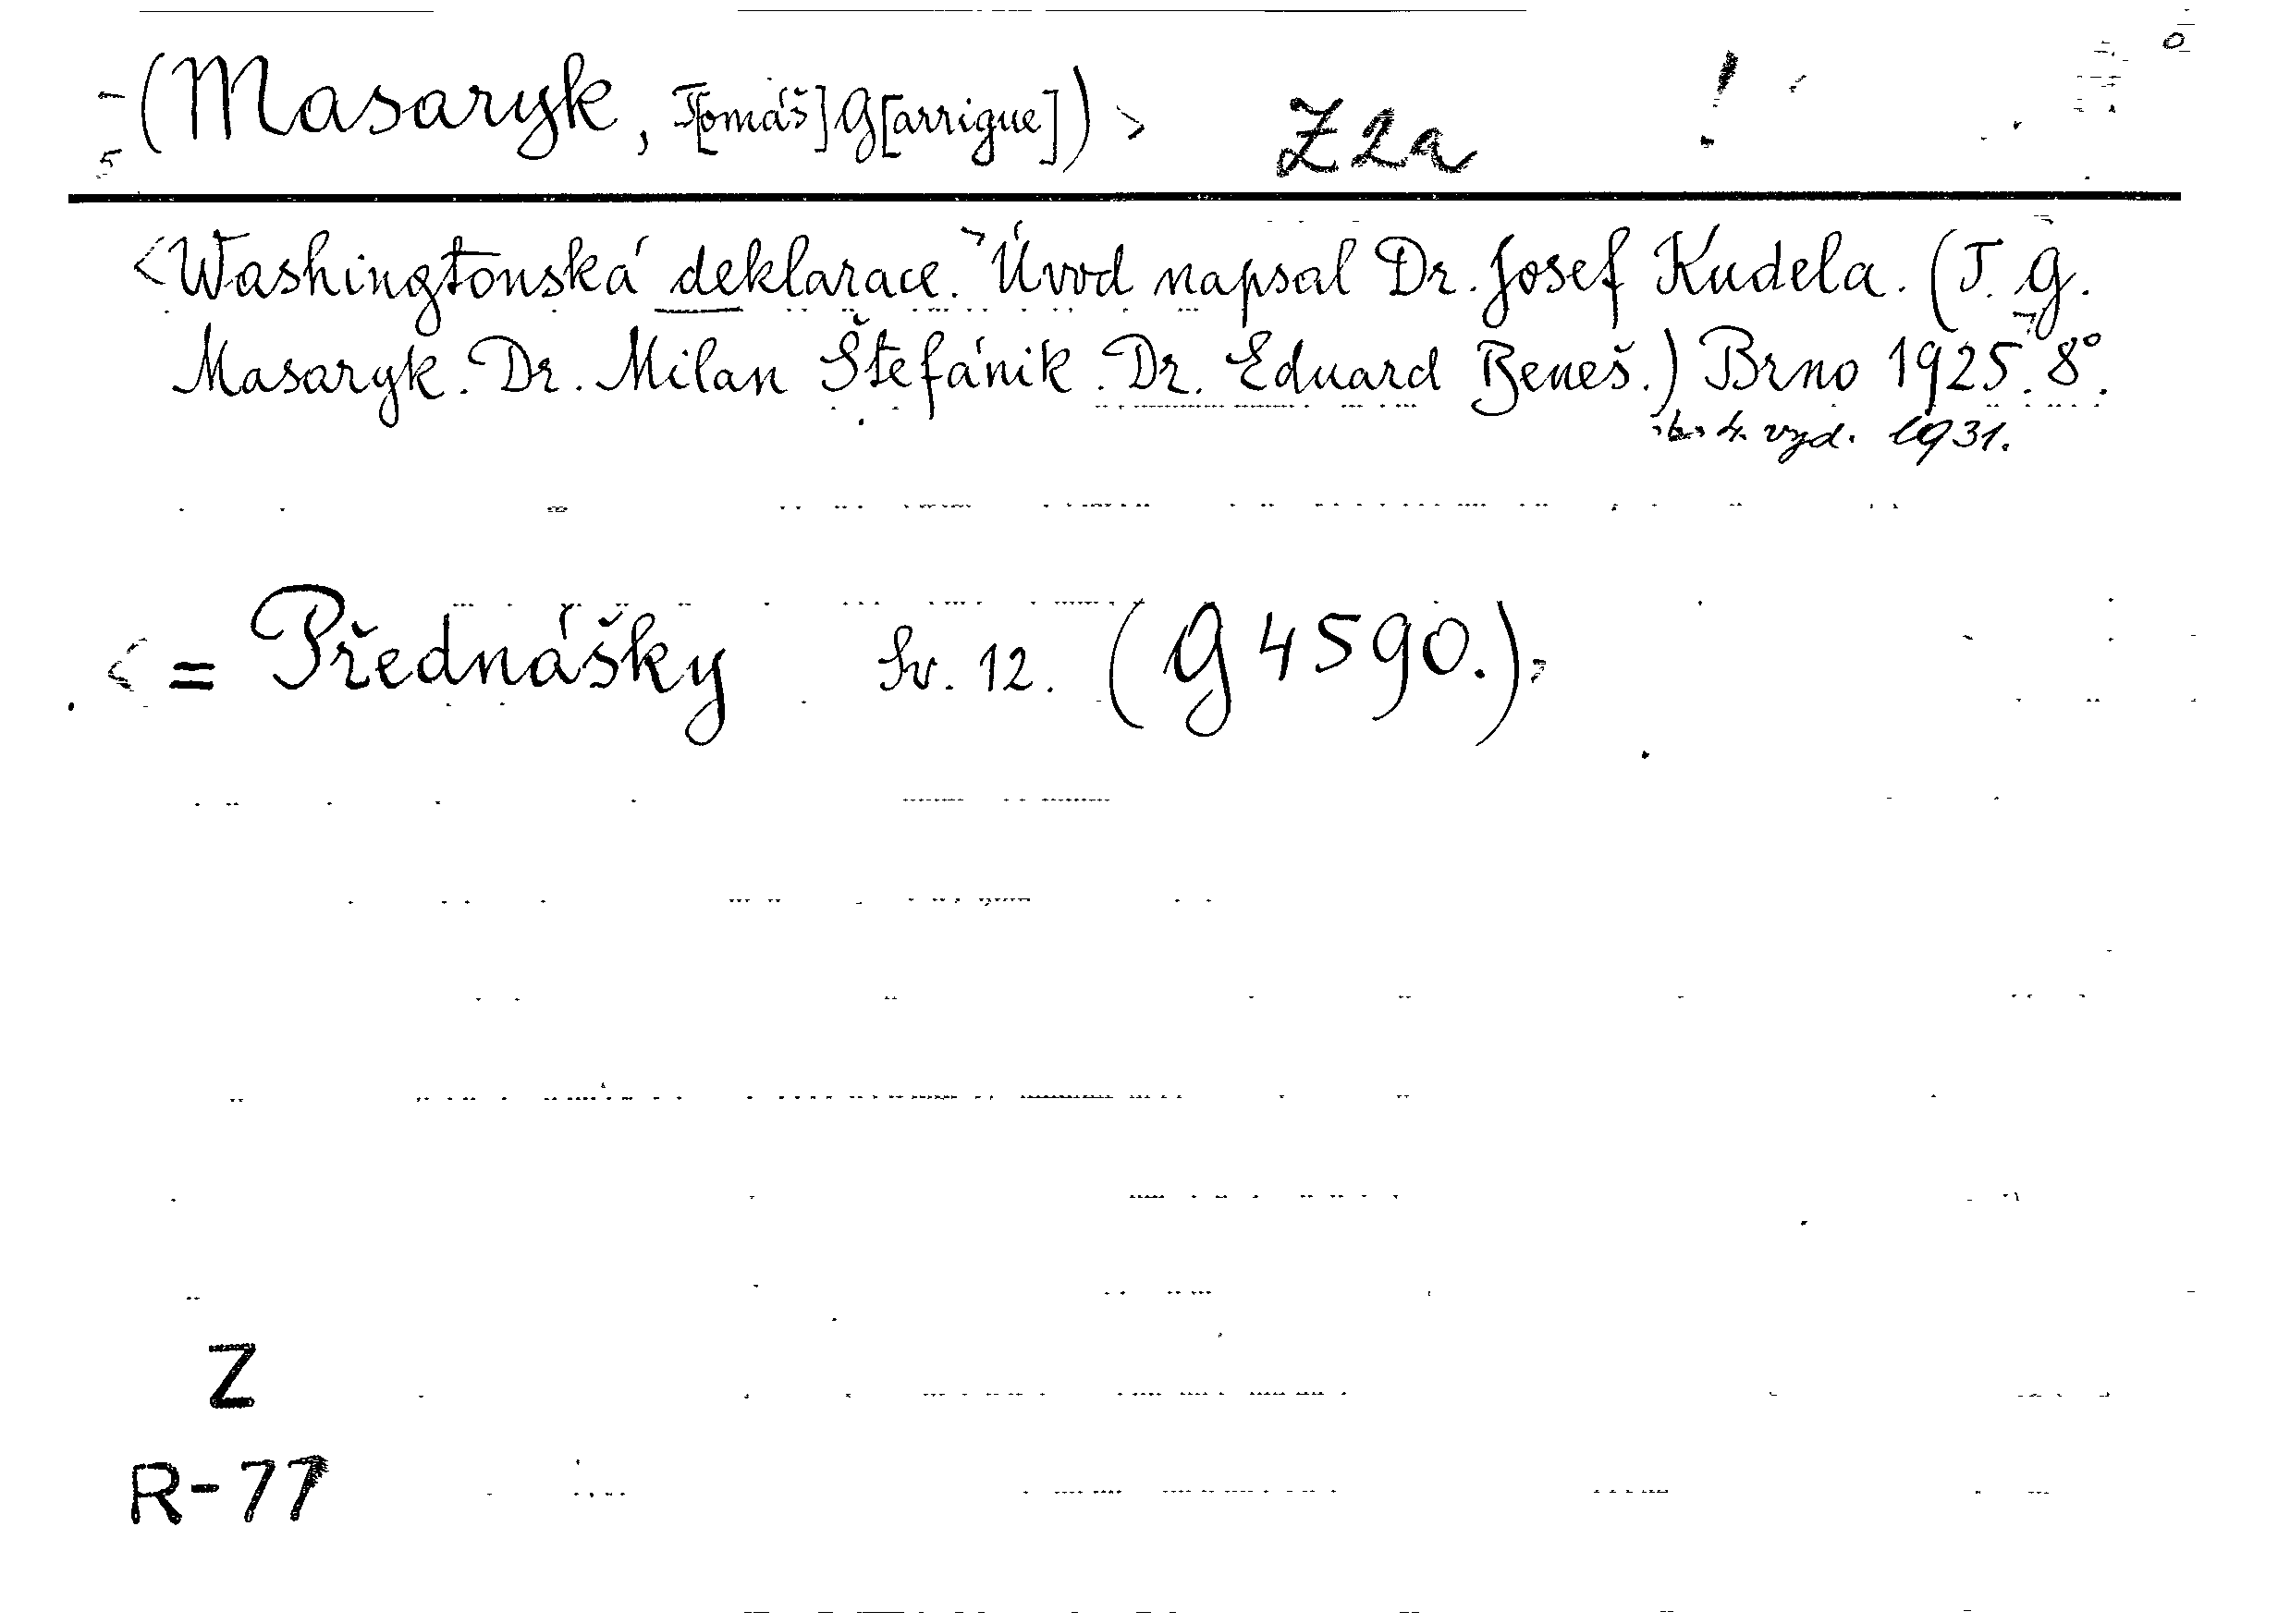 (Masaryk, T[omáš] G[arrigue]) > Z2a !
<Washingtonská deklarace.> Úvod napsal Dr. Josef Kudela. (T. G.
Masaryk. Dr. Milan Štefánik. Dr. Eduard Beneš.) Brno 1925. 8°.
4. vyd. 1931.
< = Přednášky Sv. 12. (G 4590.) >
Z
R-77